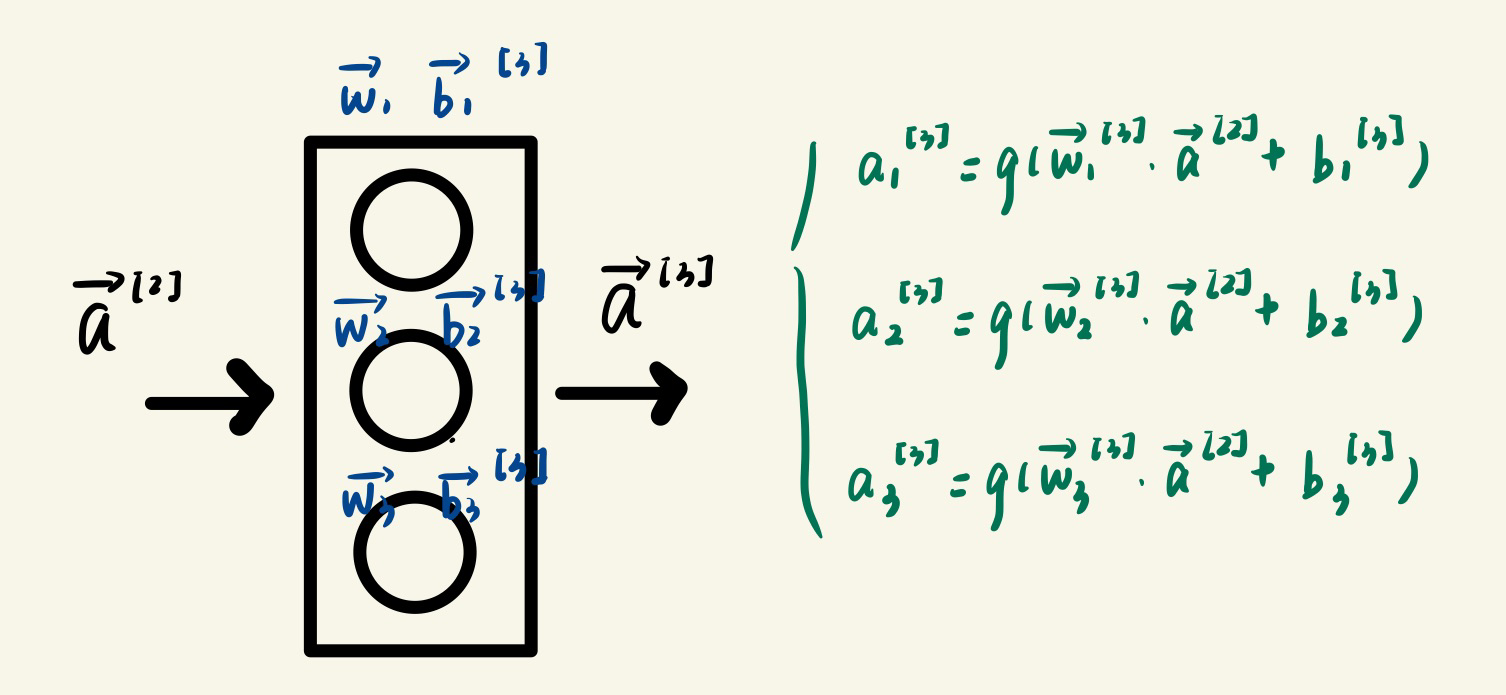 w⃗₁ b⃗₁ [3]
a⃗ [2]
w⃗₂ b⃗₂ [3]
w⃗₃ b⃗₃ [3]
a⃗ [3]
a₁[3] = g(w⃗₁[3] · a⃗[2] + b₁[3])
a₂[3] = g(w⃗₂[3] · a⃗[2] + b₂[3])
a₃[3] = g(w⃗₃[3] · a⃗[2] + b₃[3])